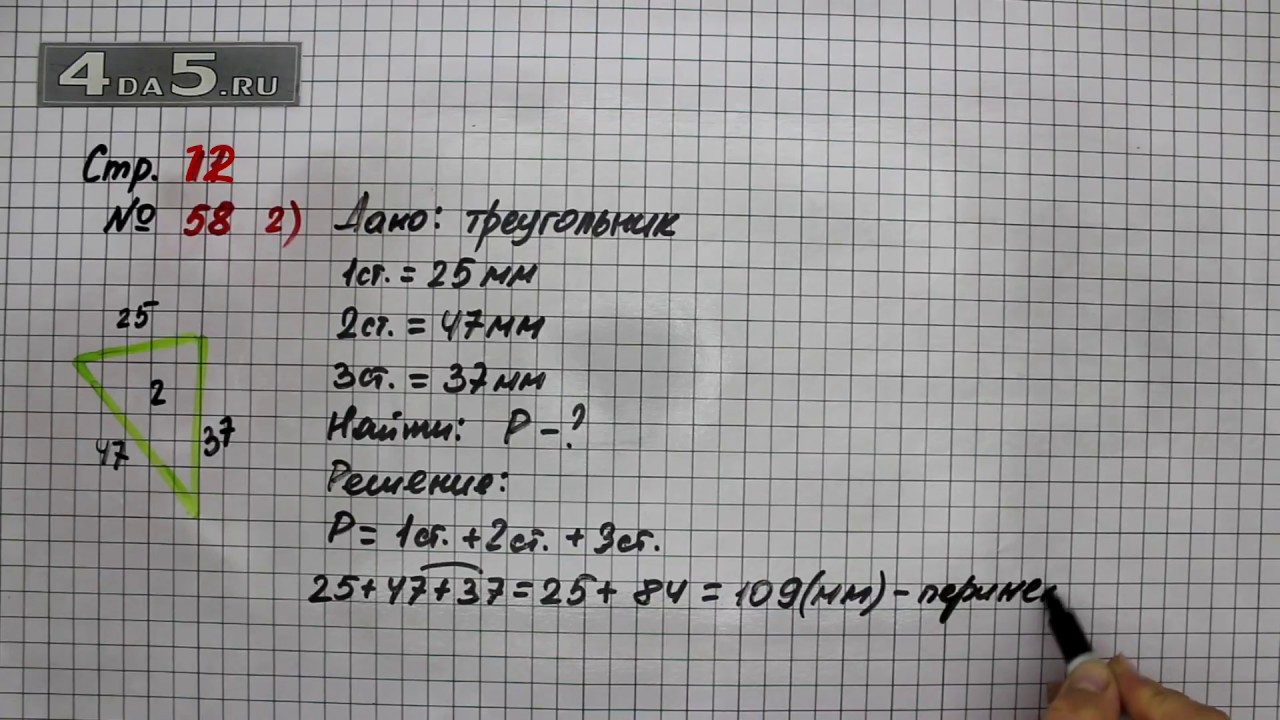 4DA5.RU
Стр. 12
№ 58 2) Дано: треугольник
1ст. = 25 мм
2ст. = 47 мм
3ст. = 37 мм
Найти: P - ?
Решение:
P = 1ст. + 2ст. + 3ст.
25 + 47 + 37 = 25 + 84 = 109 (мм) - периме
25
2
47
37